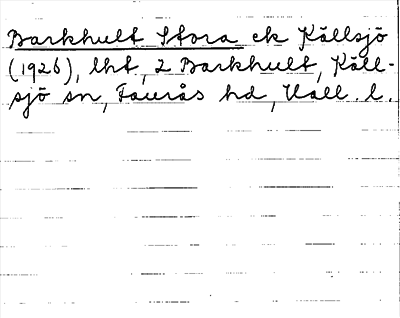 Barkhult Stora ek Källsjö
(1926), lht, 2 Barkhult, Käll-
sjö sn, Faurås hd, Hall. l.